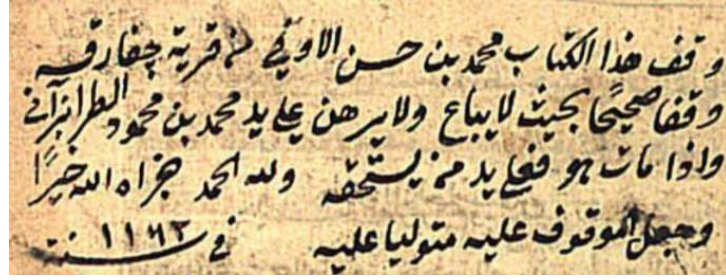 وقف هذا الكتاب محمد بن حسن الاوفي من قرية چفارق
وقفا صحيحًا بحيث لا يباع ولا يرهن علي يد محمد بن محمود الطرابزاني
واذا مات هو فعلي يد من يستحقه ولله الحمد جزاه الله خيرًا
وجعل الموقوف عليه متوليا عليه في سنة ١١٦٢